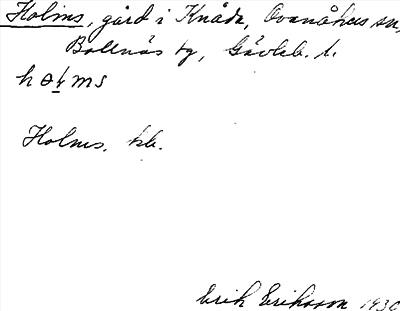 Holms, gård i Knåda, Ovanåkers sn,
Bollnäs tg, Gävleb. l.
holms
Holms. kb.
Erik Eriksson 1930